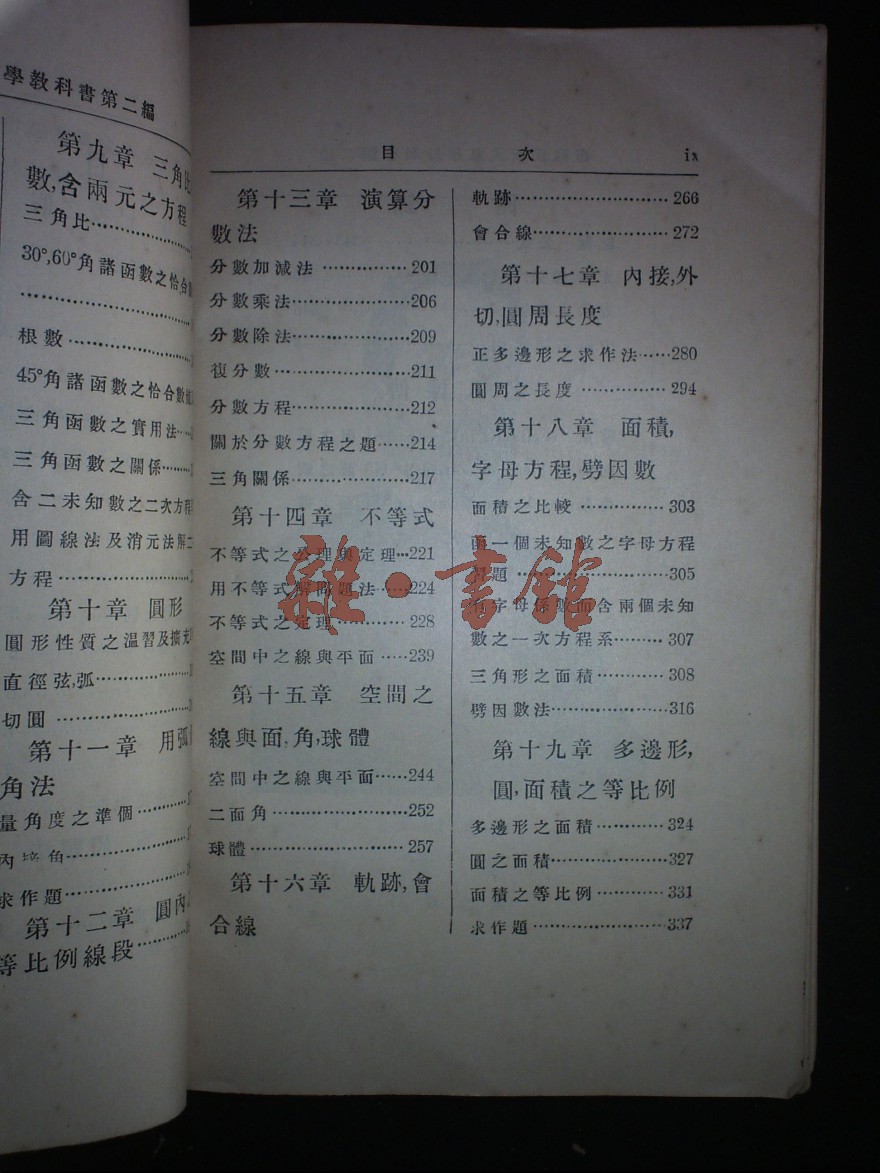 學教科書第二編
第九章 三角比
數,含兩元之方程
三角比
30°,60°角諸函數之恰合
根數
45°角諸函數之恰合數
三角函數之實用法
三角函數之關係
含二未知數之二次方程
用圖線法及消元法解二
方程
第十章 圓形
圓形性質之溫習及擴充
直徑弦,弧
切圓
第十一章 用弧
角法
量角度之準個
內接角
求作題
第十二章 圓內
等比例線段
目 次 ix
第十三章 演算分
數法
分數加減法 ……………… 201
分數乘法 ……………… 206
分數除法 ……………… 209
復分數 ……………… 211
分數方程 ……………… 212
關於分數方程之題 …… 214
三角關係 ……………… 217
第十四章 不等式
不等式之公理與定理 … 221
用不等式解問題法 …… 224
不等式之定理 ………… 228
空間中之線與平面 …… 239
第十五章 空間之
線與面,角,球體
空間中之線與平面 …… 244
二面角 ……………… 252
球體 ……………… 257
第十六章 軌跡,會
合線
軌跡 ……………… 266
會合線 ……………… 272
第十七章 內接,外
切,圓周長度
正多邊形之求作法 …… 280
圓周之長度 …………… 294
第十八章 面積,
字母方程,劈因數
面積之比較 …………… 303
函一個未知數之字母方程
習題 ……………… 305
有字母係數而含兩個未知
數之一次方程系 ……… 307
三角形之面積 ………… 308
劈因數法 ……………… 316
第十九章 多邊形,
圓,面積之等比例
多邊形之面積 ………… 324
圓之面積 ……………… 327
面積之等比例 ………… 331
求作題 ……………… 337
雜·書館